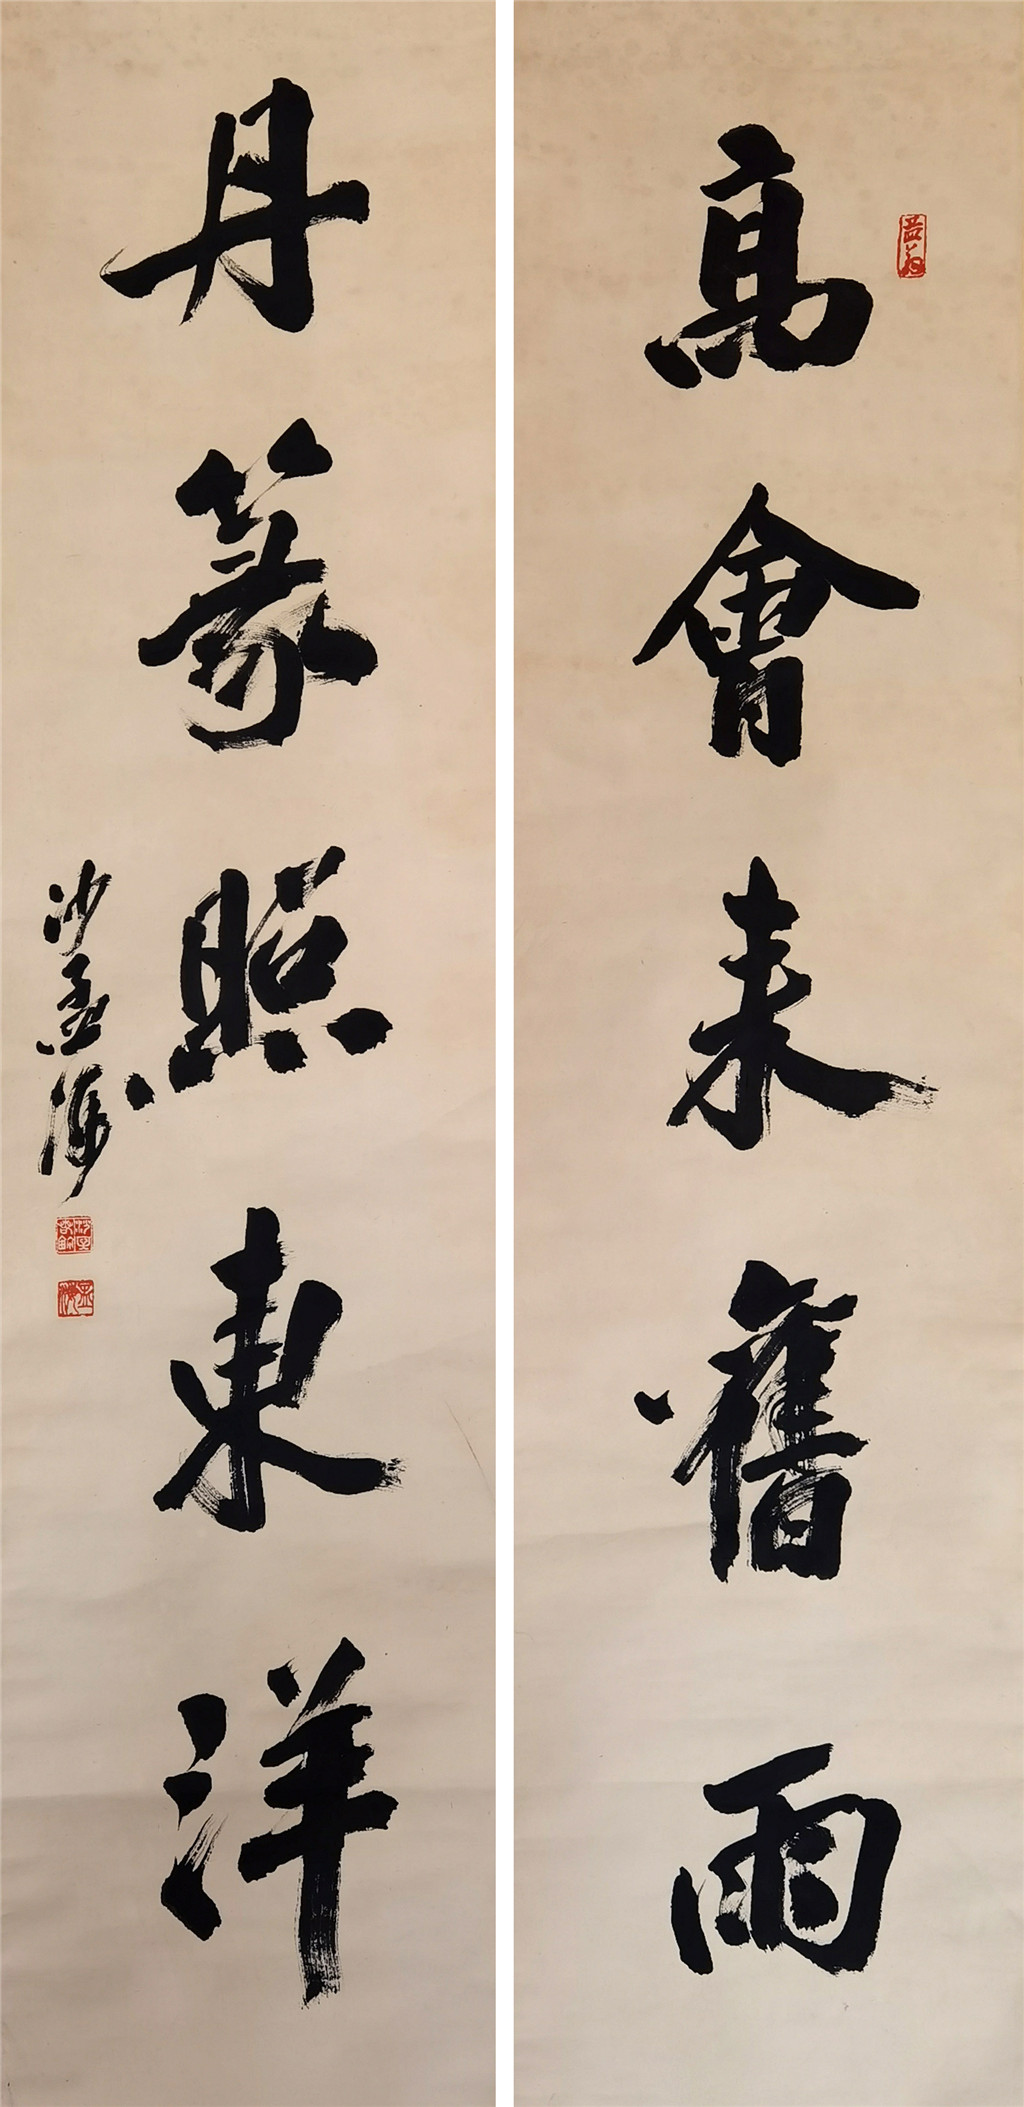 高會來舊雨
丹篆照東洋
沙孟海